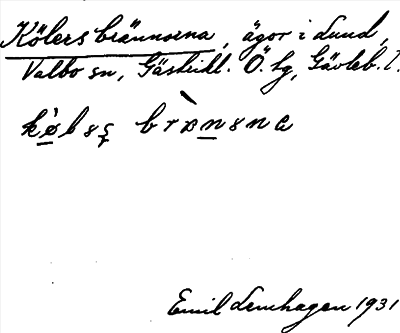 Kölersbrännorna, ägor i Lund,
Valbo sn, Gästrikl. Ö. hg, Gävleb. l.
Emil Lenhagen 1931